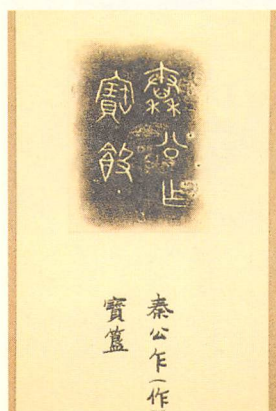 秦公乍
寶𣪘
秦公乍一作
寶簋